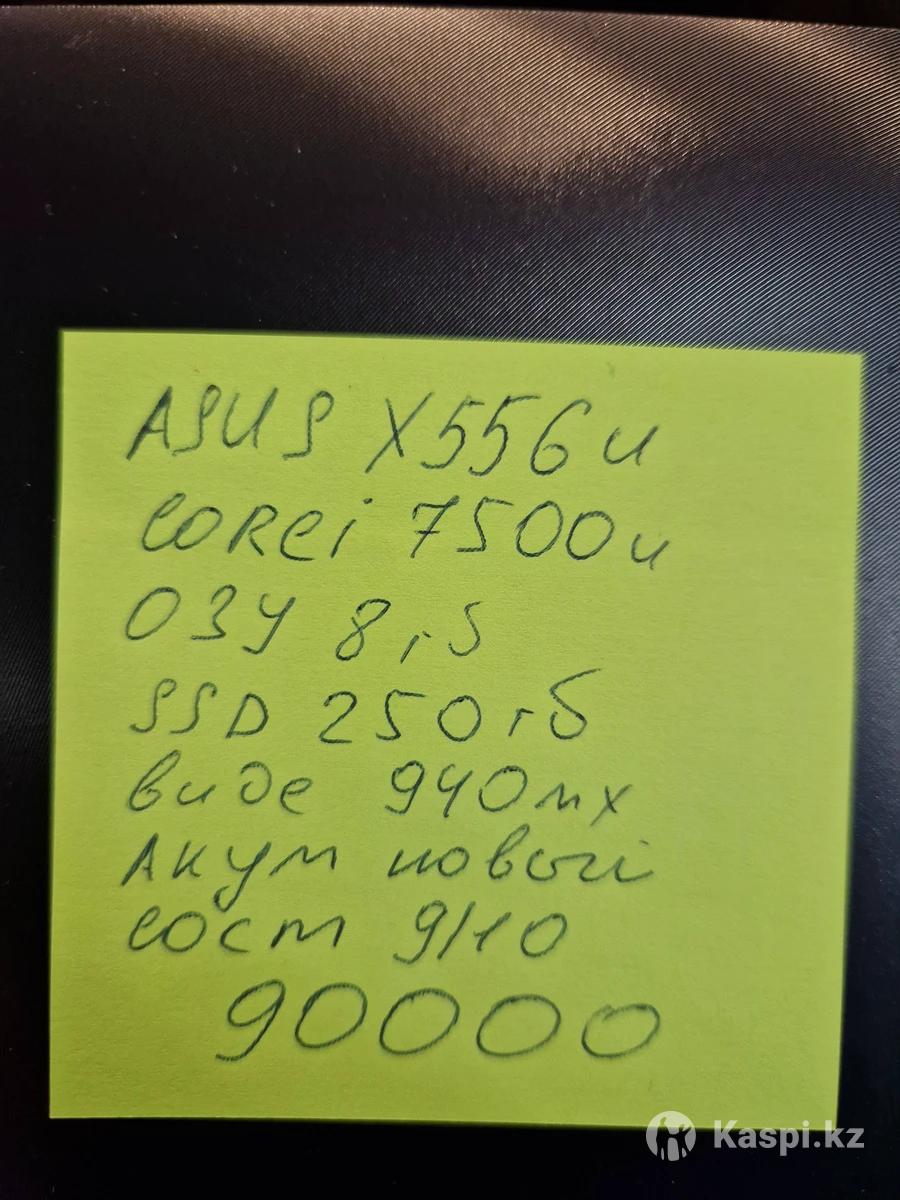 ASUS X556u
COREi 7500u
ОЗУ 8гб
SSD 250гб
виде 940мх
Акум новый
сост 9/10
90000
Kaspi.kz